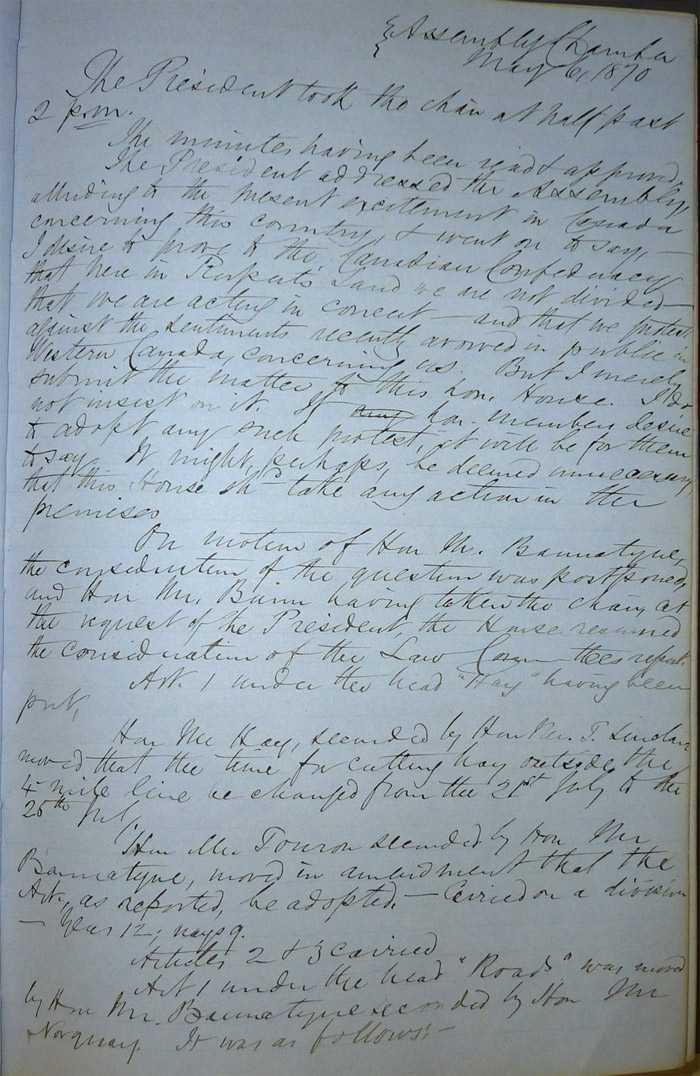 Assembly Chamber
May 6, 1870
The President took the chair at half past
2 p.m.
The minutes having been read & approved,
The President addressed the Assembly,
alluding to the present excitement in Canada
concerning this country, & went on to say, —
I desire to prove to the Canadian Confederacy
that here in Rupert's Land we are not divided —
that we are acting in concert — and that we protest
against the sentiments recently avowed in public in
Western Canada, concerning us. But I merely
submit the matter to this hon. House. I do
not insist on it. If any hon. members desire
to adopt any such protest, it will be for them
to say. It might, perhaps, be deemed unnecessary
that this House shd take any action in the
premises
On motion of Hon Mr. Bannatyne,
the consideration of the question was postponed,
and Hon Mr. Bunn having taken the chair, at
the request of he President, the House resumed
the consideration of the Law Com tees report.
Art. 1 under the head "Hay" having been
put,
Hon Mr Hay, seconded by Hon Mr. T. Sinclair
moved that the time for cutting hay outside the
4 mile line be changed from the 21st July to the
25th July,
Hon Mr Touron seconded by Hon Mr
Bannatyne, moved in amendment that the
Art., as reported, be adopted. — Carried on a division
— Yeas 12; nays 9.
Articles 2 & 3 carried
Art 1 under the head "Roads" was moved
by Hon Mr. Bannatyne seconded by Hon Mr
Norquay. It was as follows:—